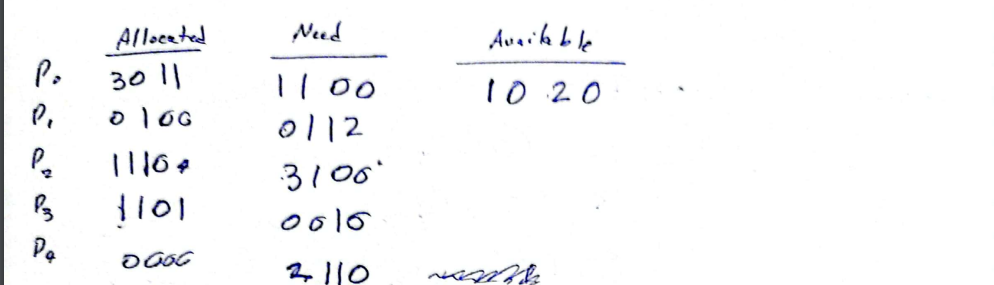 Allocated Need Available
P0 3011 1100 1020
P1 0100 0112
P2 1110 3100
P3 1101 0010
P4 0000 2110